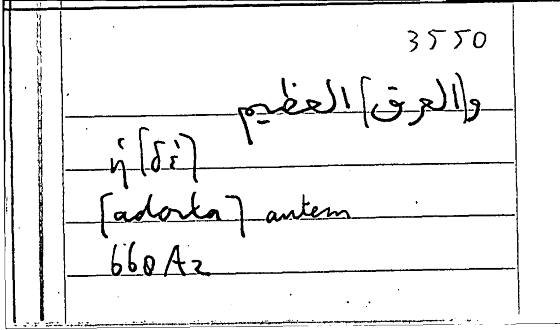 3550
و[العرق] العظيم
ἡ [δέ]
[adorta] autem
660 A2